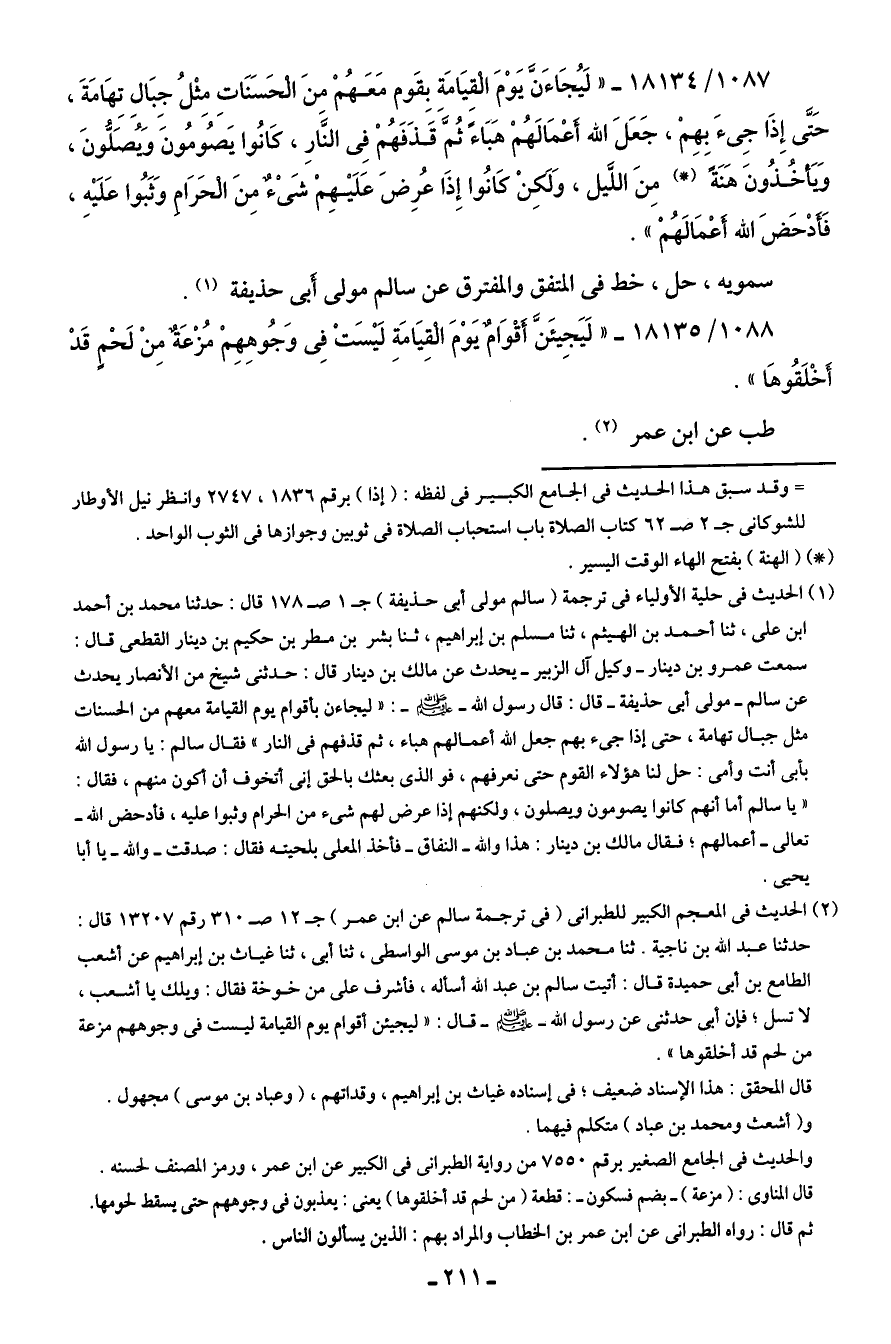 ١٠٨٧/ ١٨١٣٤ ـ « لَيُجَاءَنَّ يَوْمَ الْقِيَامَةِ بِقَومٍ مَعَهُمْ مِنَ الْحَسَنَاتِ مِثْلُ جِبَالِ تِهَامَةَ ،
حَتَّى إِذَا جِىءَ بِهِمْ ، جَعَلَ الله أَعْمَالَهُمْ هَبَاءً ثُمَّ قَذَفَهُمْ فِى النَّارِ ، كَانُوا يَصُومُونَ وَيُصَلُّونَ ،
وَيَأخُذُونَ هَنَةً (*) مِنَ اللَّيل ، وَلَكِنْ كَانُوا إِذَا عُرِضَ عَلَيْهِمْ شَىْءٌ مِنَ الْحَرَامِ وَثَبُوا عَلَيْهِ ،
فَأَدْحَضَ الله أَعْمَالَهُمْ » .
سمويه ، حل ، خط فى المتفق والمفترق عن سالم مولى أَبى حذيفة (١) .
١٠٨٨/ ١٨١٣٥ ـ « لَيَجِيئَنَّ أَقْوَامٌ يَوْمَ الْقِيَامَةِ لَيْسَتْ فِى وَجُوهِهِمْ مُزْعَةٌ مِنْ لَحْمٍ قَدْ
أَخْلَقُوهَا » .
طب عن ابن عمر (٢) .
= وقد سبق هذا الحديث فى الجامع الكبير فى لفظه : ( إذا ) برقم ١٨٣٦ ، ٢٧٤٧ وانظر نيل الأوطار
للشوكانى جـ ٢ صـ ٦٢ كتاب الصلاة باب استحباب الصلاة فى ثوبين وجوازها فى الثوب الواحد .
(*) ( الهنة ) بفتح الهاء الوقت اليسير .
(١) الحديث فى حلية الأولياء فى ترجمة ( سالم مولى أبى حذيفة ) جـ ١ صـ ١٧٨ قال : حدثنا محمد بن أحمد
ابن على ، ثنا أحمد بن الهيثم ، ثنا مسلم بن إبراهيم ، ثنا بشر بن مطر بن حكيم بن دينار القطعى قال :
سمعت عمرو بن دينار ـ وكيل آل الزبير ـ يحدث عن مالك بن دينار قال : حدثنى شيخ من الأنصار يحدث
عن سالم ـ مولى أبى حذيفة ـ قال : قال رسول الله ـ ﷺ ـ : « ليجاءن بأقوام يوم القيامة معهم من الحسنات
مثل جبال تهامة ، حتى إذا جىء بهم جعل الله أعمالهم هباء ، ثم قذفهم فى النار » فقال سالم : يا رسول الله
بأبى أنت وأمى : حل لنا هؤلاء القوم حتى نعرفهم ، فو الذى بعثك بالحق إنى أتخوف أن أكون منهم ، فقال :
« يا سالم أما أنهم كانوا يصومون ويصلون ، ولكنهم إذا عرض لهم شىء من الحرام وثبوا عليه ، فأدحض الله ـ
تعالى ـ أعمالهم ؛ فقال مالك بن دينار : هذا والله ـ النفاق ـ فأخذ المعلى بلحيته فقال : صدقت ـ والله ـ يا أبا
يحيى .
(٢) الحديث فى المعجم الكبير للطبرانى ( فى ترجمة سالم عن ابن عمر ) جـ ١٢ صـ ٣١٠ رقم ١٣٢٠٧ قال :
حدثنا عبد الله بن ناجية . ثنا محمد بن عباد بن موسى الواسطى ، ثنا أبى ، ثنا غياث بن إبراهيم عن أشعب
الطامع بن أبى حميدة قال : أتيت سالم بن عبد الله أسأله ، فأشرف على من خوخة فقال : ويلك يا أشعب ،
لا تسل ؛ فإن أبى حدثنى عن رسول الله ـ ﷺ ـ قال : « ليجيئن أقوام يوم القيامة ليست فى وجوههم مزعة
من لحم قد أخلقوها » .
قال المحقق : هذا الإسناد ضعيف ؛ فى إسناده غياث بن إبراهيم ، وقداتهم ، ( وعباد بن موسى ) مجهول .
و( أشعث ومحمد بن عباد ) متكلم فيهما .
والحديث فى الجامع الصغير برقم ٧٥٥٠ من رواية الطبرانى فى الكبير عن ابن عمر ، ورمز المصنف لحسنه .
قال المناوى : ( مزعة ) ـ بضم فسكون ـ : قطعة ( من لحم قد أخلقوها ) يعنى : يعذبون فى وجوههم حتى يسقط لحومها.
ثم قال : رواه الطبرانى عن ابن عمر بن الخطاب والمراد بهم : الذين يسألون الناس .
ـ ٢١١ ـ